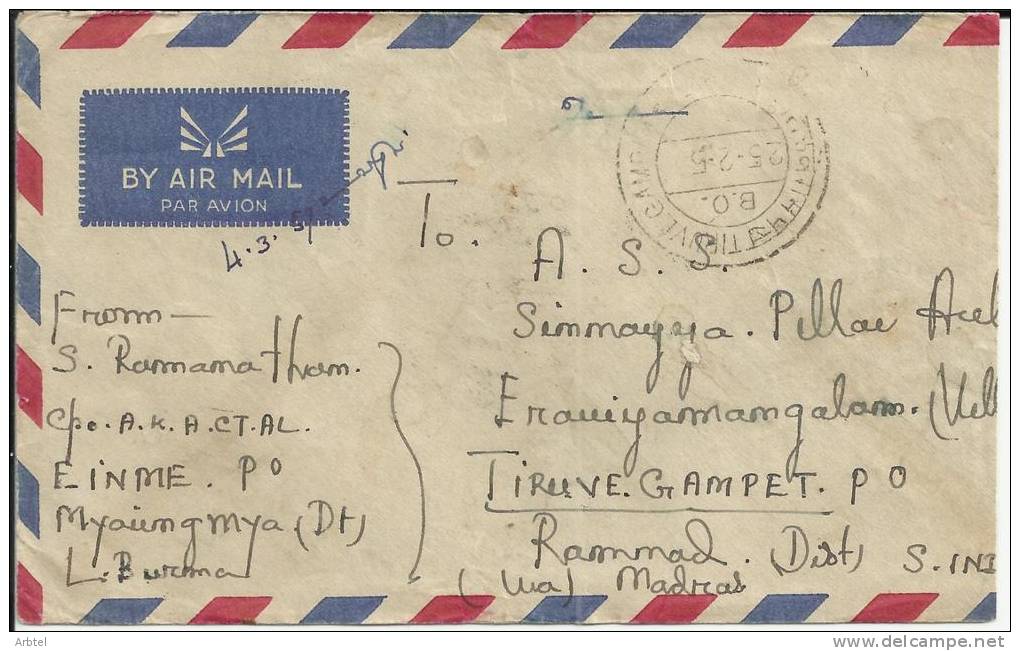 BY AIR MAIL
PAR AVION
4.3.5
To.
A. S. S.
Sinnayya. Pillai
Eraviyamangalam.
TIRUVE.GAMPET. PO
Ramnad. (Dist) S. INI
(Via) Madras
From—
S. Ramanatham.
C/o. A. K. A. CT. AL.
EINME. PO
Myaungmya (Dt)
L. Burma
B.O.
25-2-5
Arbtel
www.delcampe.net